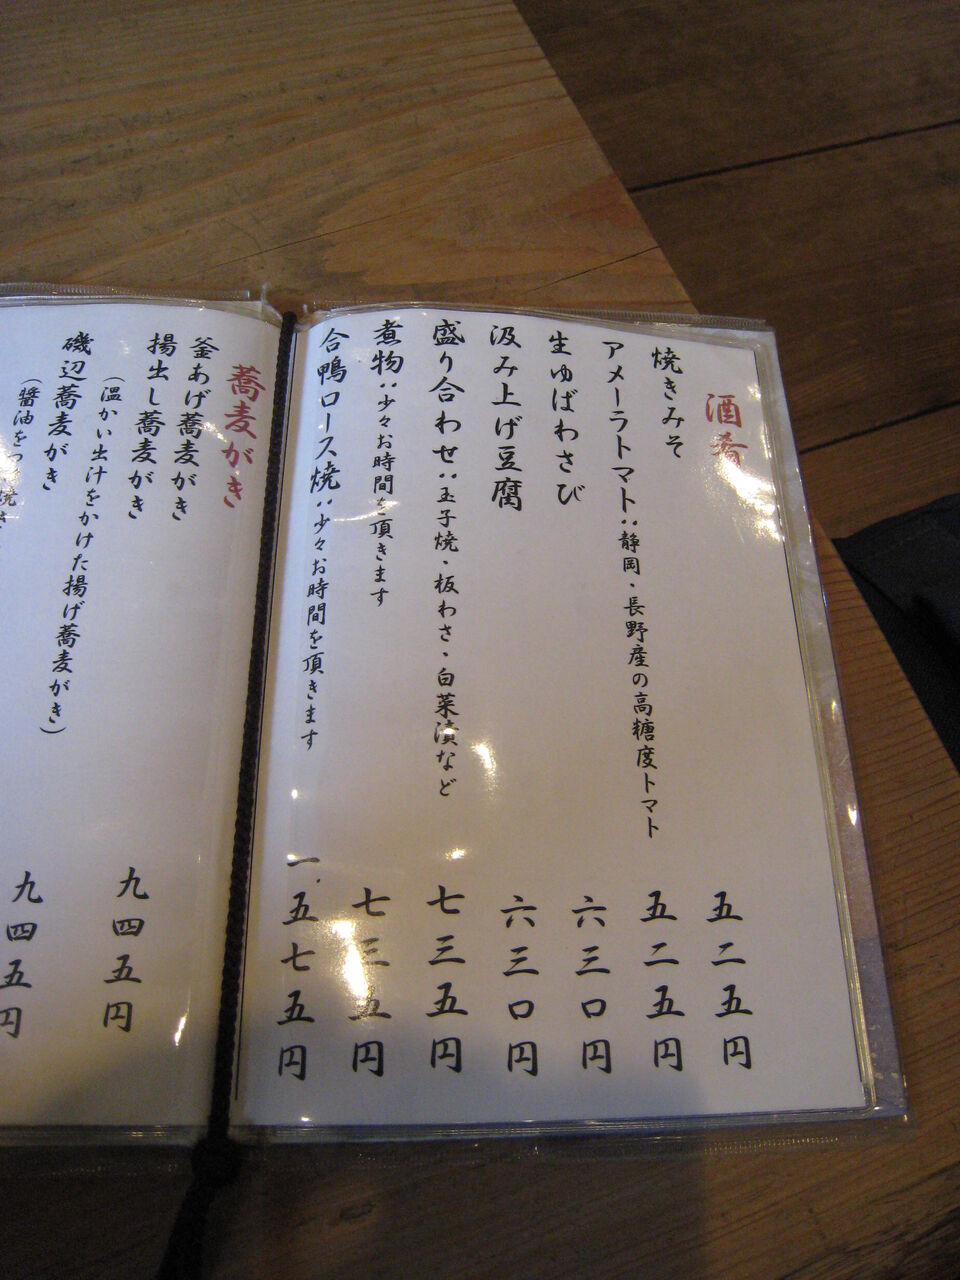 酒肴
焼きみそ 五二五円
アメーラトマト‥静岡・長野産の高糖度トマト 五二五円
生ゆばわさび 六三〇円
汲み上げ豆腐 六三〇円
盛り合わせ‥玉子焼・板わさ・白菜漬など 七三五円
煮物‥少々お時間を頂きます 七三五円
合鴨ロース焼‥少々お時間を頂きます 一、五七五円
蕎麦がき
釜あげ蕎麦がき 九四五円
揚出し蕎麦がき 九四五円
(温かい出汁をかけた揚げ蕎麦がき)
磯辺蕎麦がき
(醬油をつ